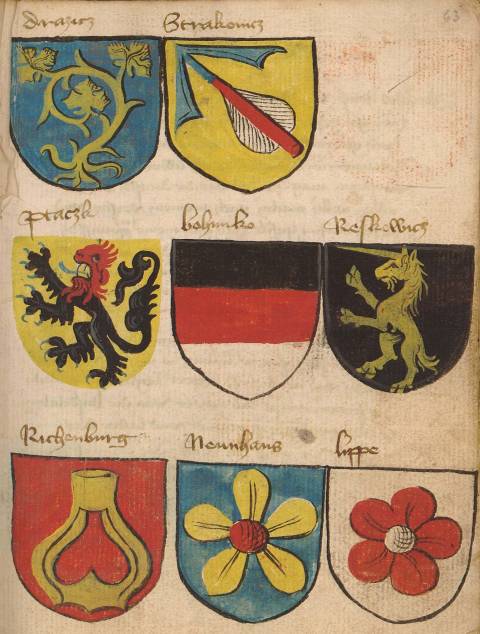 drazicz
Strakonicz
63
ptaczk
bohunko
Reskewicz
Richenburg
Neunhaus
lippe